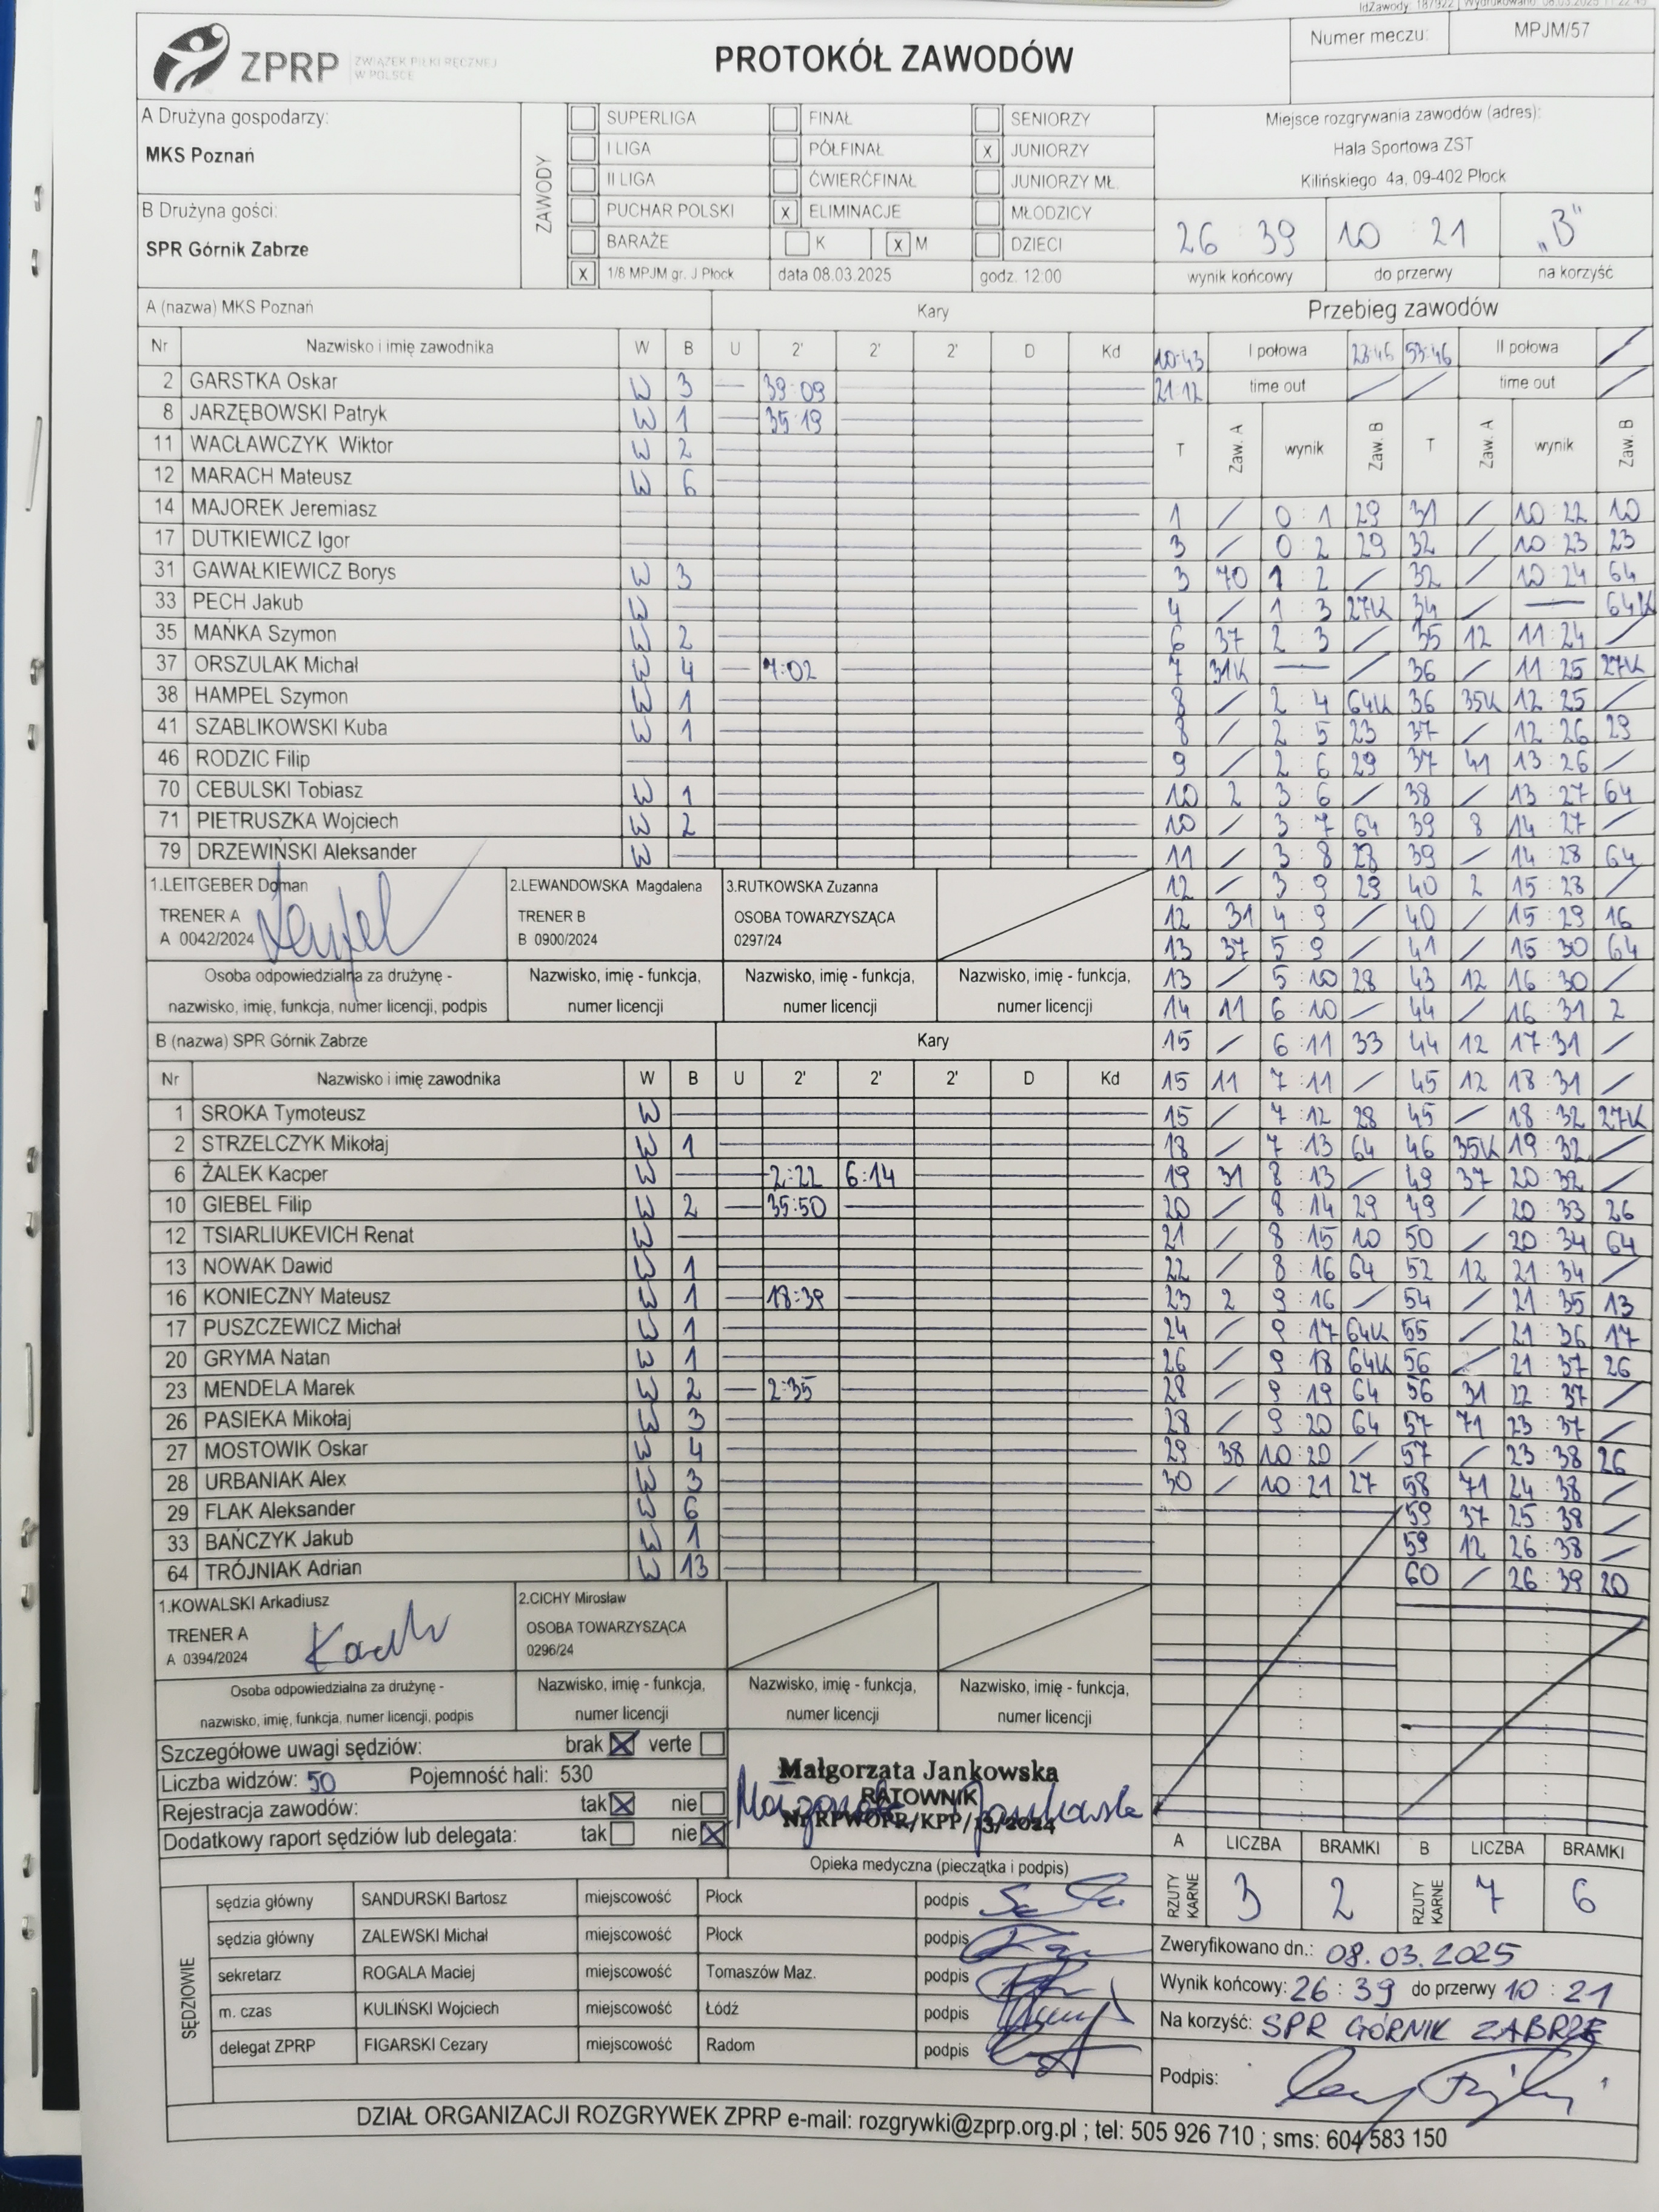 IdZawody: 187922 | Wydrukowano: 08.03.2025 11:22:45
ZPRP ZWIĄZEK PIŁKI RĘCZNEJ W POLSCE
PROTOKÓŁ ZAWODÓW
Numer meczu: MPJM/57
A Drużyna gospodarzy:
MKS Poznań
B Drużyna gości:
SPR Górnik Zabrze
ZAWODY
SUPERLIGA FINAŁ SENIORZY
I LIGA PÓŁFINAŁ x JUNIORZY
II LIGA ĆWIERĆFINAŁ JUNIORZY MŁ.
PUCHAR POLSKI x ELIMINACJE MŁODZICY
BARAŻE K x M DZIECI
x 1/8 MPJM gr. J Płock data 08.03.2025 godz. 12:00
Miejsce rozgrywania zawodów (adres):
Hala Sportowa ZST
Kilińskiego 4a, 09-402 Płock
26 : 39 10 : 21 „B"
wynik końcowy do przerwy na korzyść
A (nazwa) MKS Poznań Kary
Nr Nazwisko i imię zawodnika W B U 2' 2' 2' D Kd
2 GARSTKA Oskar W 3 — 39:09
8 JARZĘBOWSKI Patryk W 1 — 35:19
11 WACŁAWCZYK Wiktor W 2
12 MARACH Mateusz W 6
14 MAJOREK Jeremiasz
17 DUTKIEWICZ Igor
31 GAWAŁKIEWICZ Borys W 3
33 PECH Jakub W
35 MAŃKA Szymon W 2
37 ORSZULAK Michał W 4 — 7:02
38 HAMPEL Szymon W 1
41 SZABLIKOWSKI Kuba W 1
46 RODZIC Filip
70 CEBULSKI Tobiasz W 1
71 PIETRUSZKA Wojciech W 2
79 DRZEWIŃSKI Aleksander W
1.LEITGEBER Doman
TRENER A
A 0042/2024
2.LEWANDOWSKA Magdalena
TRENER B
B 0900/2024
3.RUTKOWSKA Zuzanna
OSOBA TOWARZYSZĄCA
0297/24
Osoba odpowiedzialna za drużynę -
nazwisko, imię, funkcja, numer licencji, podpis
Nazwisko, imię - funkcja,
numer licencji
Nazwisko, imię - funkcja,
numer licencji
Nazwisko, imię - funkcja,
numer licencji
B (nazwa) SPR Górnik Zabrze Kary
Nr Nazwisko i imię zawodnika W B U 2' 2' 2' D Kd
1 SROKA Tymoteusz W
2 STRZELCZYK Mikołaj W 1
6 ŻALEK Kacper W 2:22 6:14
10 GIEBEL Filip W 2 — 35:50
12 TSIARLIUKEVICH Renat W
13 NOWAK Dawid W 1
16 KONIECZNY Mateusz W 1 — 18:39
17 PUSZCZEWICZ Michał W 1
20 GRYMA Natan W 1
23 MENDELA Marek W 2 — 2:35
26 PASIEKA Mikołaj W 3
27 MOSTOWIK Oskar W 4
28 URBANIAK Alex W 3
29 FLAK Aleksander W 6
33 BAŃCZYK Jakub W 1
64 TRÓJNIAK Adrian W 13
1.KOWALSKI Arkadiusz
TRENER A
A 0394/2024
2.CICHY Mirosław
OSOBA TOWARZYSZĄCA
0296/24
Osoba odpowiedzialna za drużynę -
nazwisko, imię, funkcja, numer licencji, podpis
Nazwisko, imię - funkcja,
numer licencji
Nazwisko, imię - funkcja,
numer licencji
Nazwisko, imię - funkcja,
numer licencji
Przebieg zawodów
10:43 I połowa 23:46 53:46 II połowa /
21:12 time out / / time out /
T Zaw. A wynik Zaw. B T Zaw. A wynik Zaw. B
1 / 0:1 29 31 / 10:22 10
3 / 0:2 29 32 / 10:23 23
3 70 1:2 / 32 / 10:24 64
4 / 1:3 27K 34 / — 64K
6 37 2:3 / 35 12 11:24 /
7 31K — / 36 / 11:25 27K
8 / 2:4 64K 36 35K 12:25 /
8 / 2:5 23 37 / 12:26 29
9 / 2:6 29 37 41 13:26 /
10 2 3:6 / 38 / 13:27 64
10 / 3:7 64 39 8 14:27 /
11 / 3:8 28 39 / 14:28 64
12 / 3:9 29 40 2 15:28 /
12 31 4:9 / 40 / 15:29 16
13 37 5:9 / 41 / 15:30 64
13 / 5:10 28 43 12 16:30 /
14 11 6:10 / 44 / 16:31 2
15 / 6:11 33 44 12 17:31 /
15 11 7:11 / 45 12 18:31 /
15 / 7:12 28 45 / 18:32 27K
18 / 7:13 64 46 35K 19:32 /
19 31 8:13 / 49 37 20:32 /
20 / 8:14 29 49 / 20:33 26
21 / 8:15 10 50 / 20:34 64
22 / 8:16 64 52 12 21:34 /
23 2 9:16 / 54 / 21:35 13
24 / 9:17 64K 55 / 21:36 17
26 / 9:18 64K 56 / 21:37 26
28 / 9:19 64 56 31 22:37 /
28 / 9:20 64 57 71 23:37 /
29 38 10:20 / 57 / 23:38 26
30 / 10:21 27 58 71 24:38 /
59 37 25:38 /
59 12 26:38 /
60 / 26:39 20
Szczegółowe uwagi sędziów: brak X verte
Liczba widzów: 50 Pojemność hali: 530
Rejestracja zawodów: tak X nie
Dodatkowy raport sędziów lub delegata: tak nie X
Małgorzata Jankowska
RATOWNIK
Nr RPWOPR/KPP/13/2024
Małgorzata Jankowska
Opieka medyczna (pieczątka i podpis)
A LICZBA BRAMKI B LICZBA BRAMKI
RZUTY KARNE 3 2 RZUTY KARNE 7 6
SĘDZIOWIE
sędzia główny SANDURSKI Bartosz miejscowość Płock podpis
sędzia główny ZALEWSKI Michał miejscowość Płock podpis
sekretarz ROGALA Maciej miejscowość Tomaszów Maz. podpis
m. czas KULIŃSKI Wojciech miejscowość Łódź podpis
delegat ZPRP FIGARSKI Cezary miejscowość Radom podpis
Zweryfikowano dn.: 08.03.2025
Wynik końcowy: 26 : 39 do przerwy 10 : 21
Na korzyść: SPR GÓRNIK ZABRZE
Podpis:
DZIAŁ ORGANIZACJI ROZGRYWEK ZPRP e-mail: rozgrywki@zprp.org.pl ; tel: 505 926 710 ; sms: 604 583 150